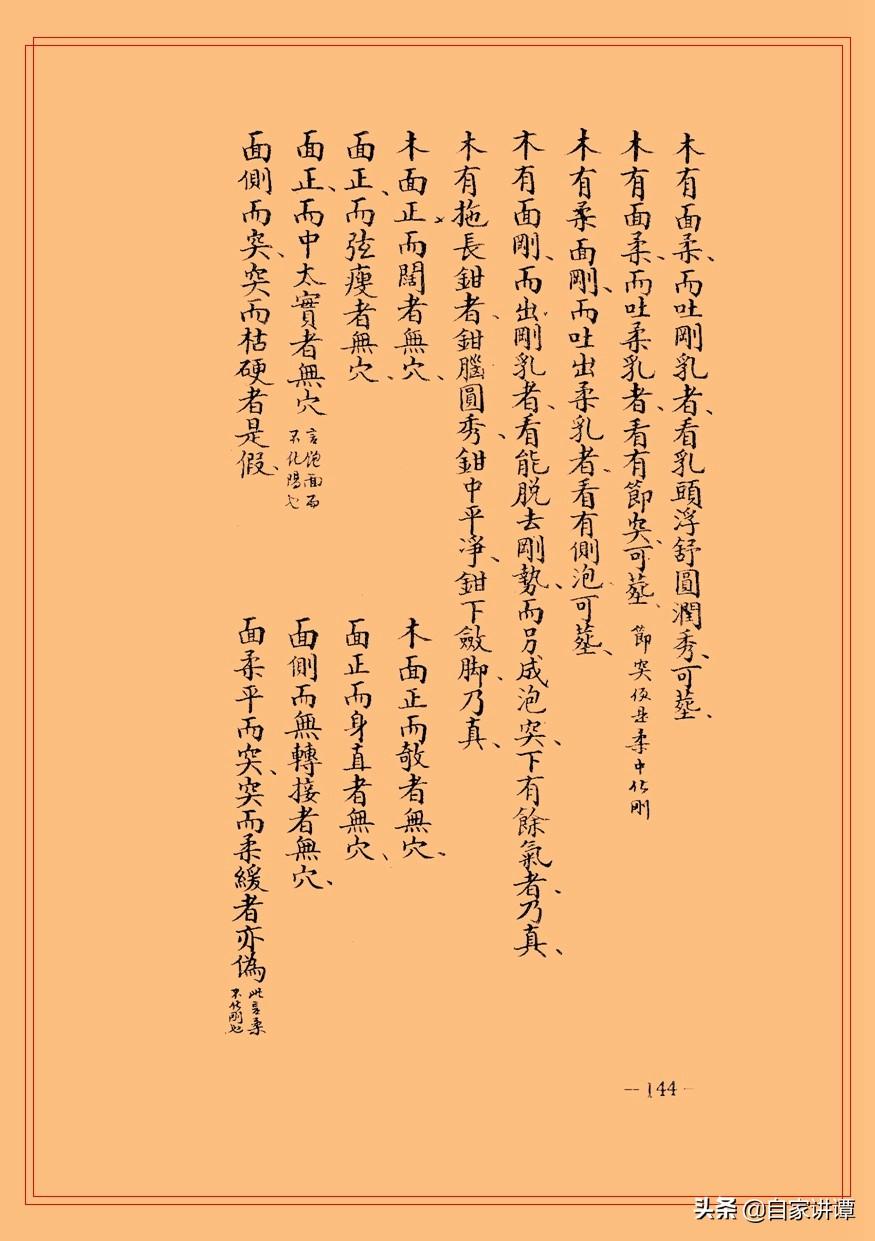 木有面柔、而吐剛乳者、看乳頭浮舒圓潤秀、可塟、
木有面柔、而吐柔乳者、看有節突、可塟、節突仮是柔中化剛
木有柔面剛、而吐出柔乳者、看有側泡可塟、
木有面剛、而出剛乳者、看能脱去剛勢、而另成泡突、下有餘氣者、乃真、
木有拖長鉗者、鉗腦圓秀、鉗中平淨、鉗下斂脚、乃真、
木面正而闊者無穴、
木面正而欹者無穴、
面正、而弦瘦者無穴、
面正而身直者無穴、
面正、而中太實者無穴 言飽面而不化陽也
面側而無轉接者無穴、
面側而突、突而枯硬者是假、
面柔平而突、突而柔緩者亦偽 此言柔不化剛也
-144-
头条 @自家讲谭